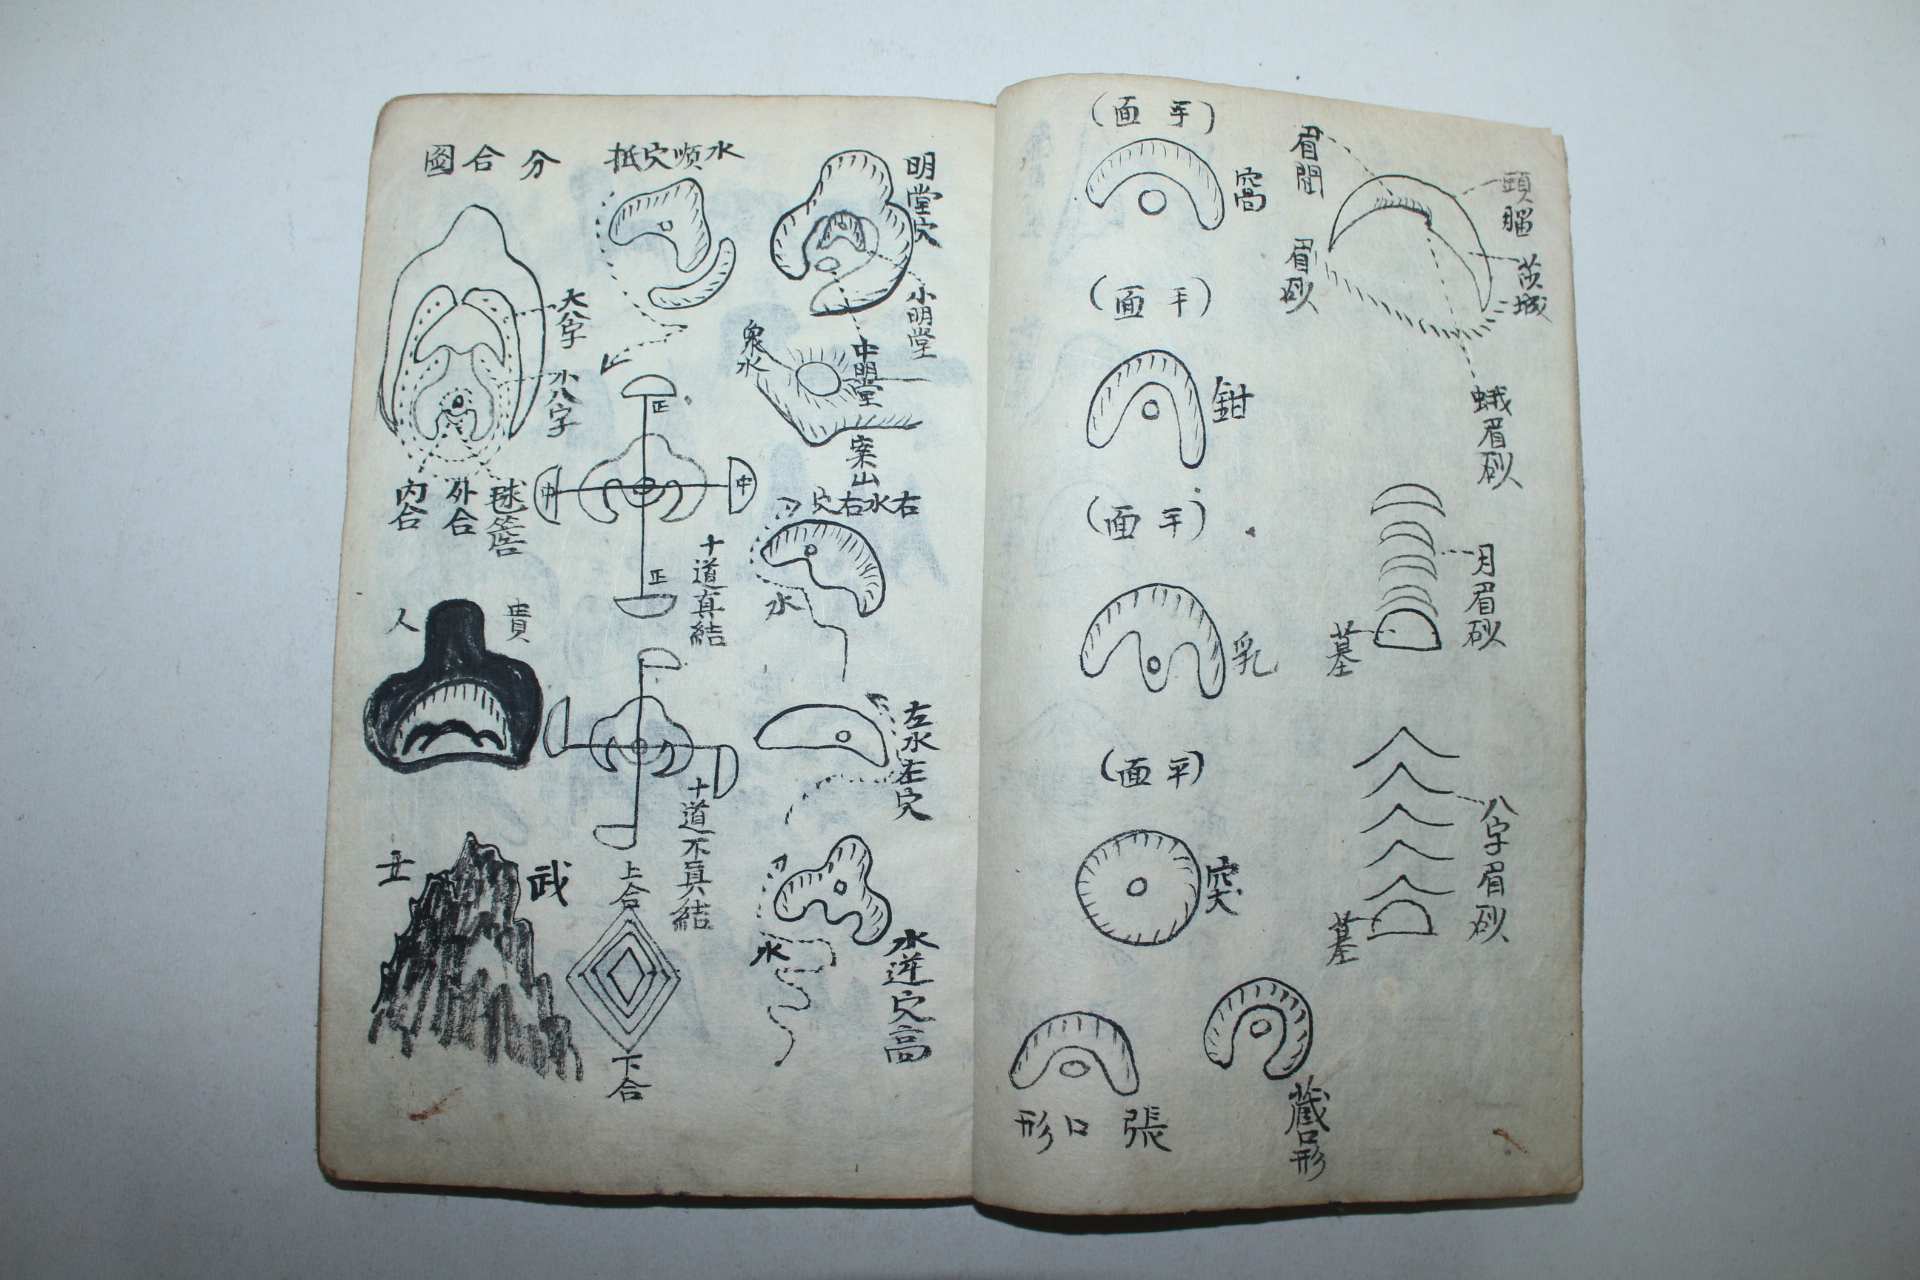 頭腦
眉間
茨城
眉砂
蛾眉砂
月眉砂
墓
八字眉砂
墓
(平面)
窩
(平面)
鉗
(平面)
乳
(平面)
突
藏口形
張口形
明堂穴
小明堂
中明堂
案山
右水右穴
水
左水左穴
水逆穴高
水
水順穴抵
正
中
中
正
十道真結
十道不真結
上合
下合
分合圖
大八字
小八字
內合
外合
貴人
武士